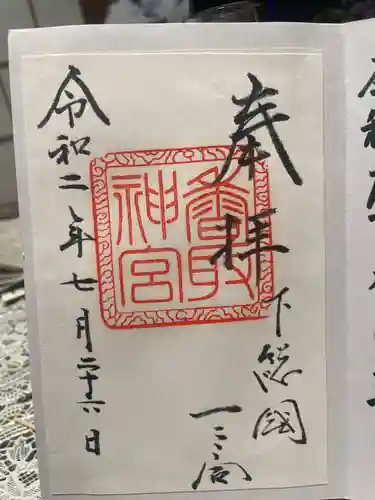 奉拝
下総國
一之宮
香取
神宮
令和二年七月二十六日